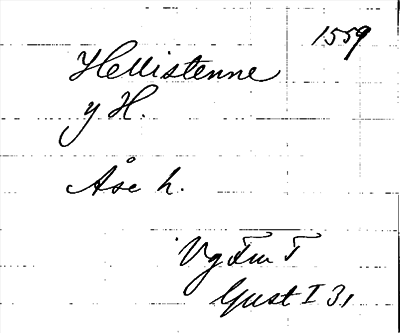 1559
Hellistenne
y H.
Åse h.
Vg Fm T
Gust I 31